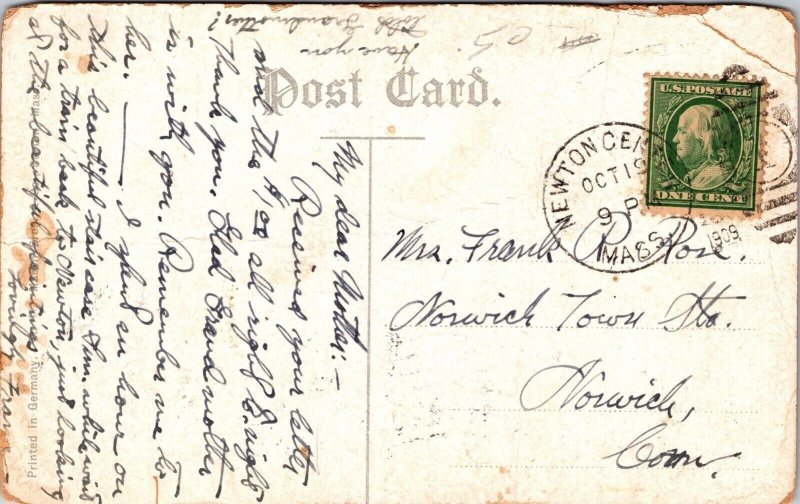 Post Card.
U.S. POSTAGE
ONE CENT
NEWTON CEN
OCT 19
9 P
MASS.
1909
Mrs. Frank P. Rose.
Norwich Town Sta.
Norwich,
Conn.
My dear Mother:—
Received your letter
and the $1.00 all right to-night
Thank you. Glad Grandmother
is with you. Remember me to
her. — I spend an hour on
this beautiful staircase Sun. while waiting
for a train back to Newton, just looking
at the beautiful paintings.
Lovingly Fran
Have you
told Grandmother?
Printed in Germany.